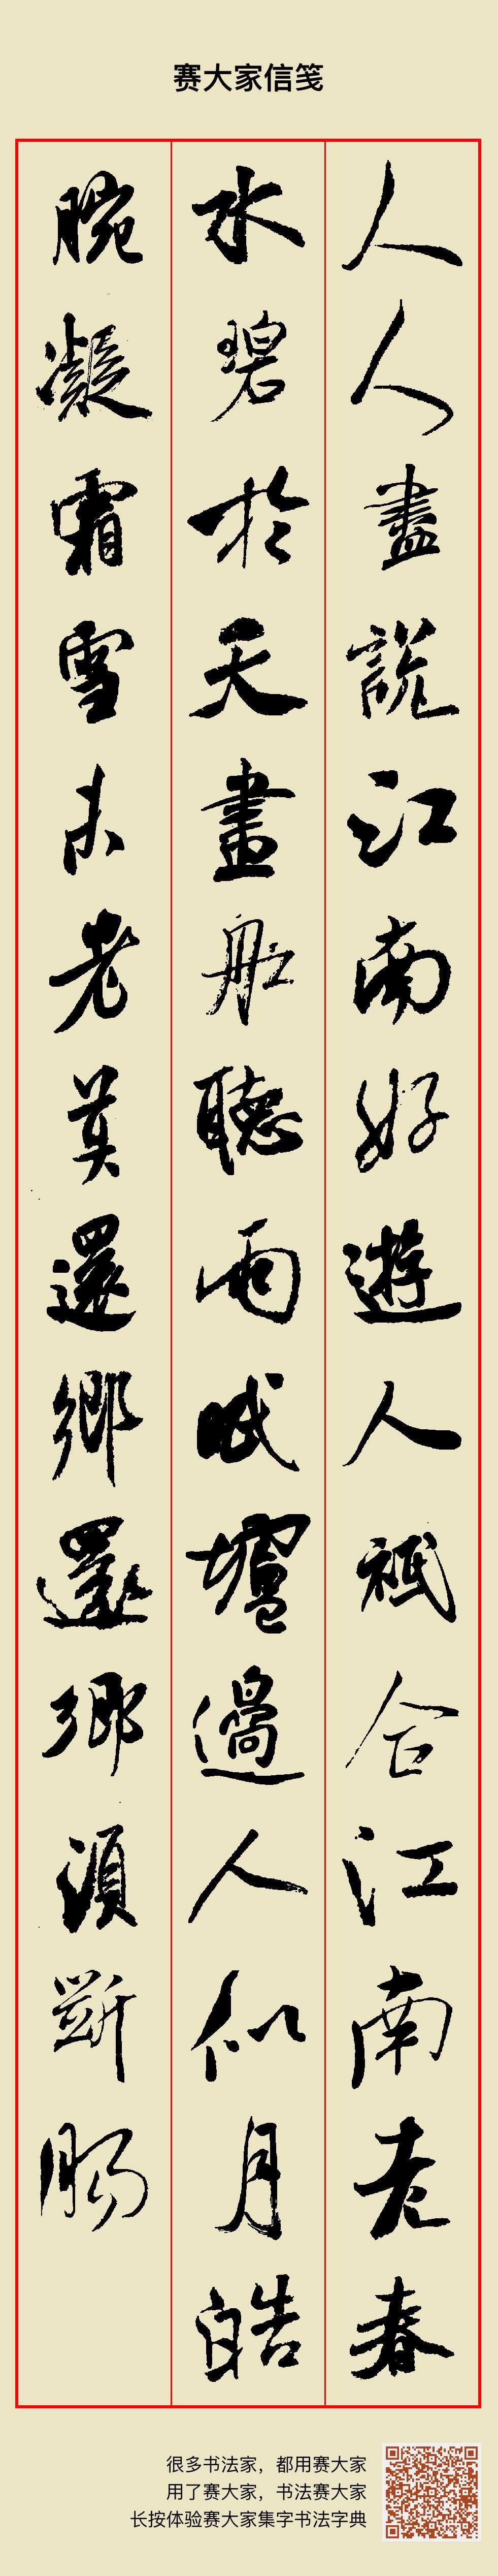 赛大家信笺
人人盡說江南好遊人祗合江南老春
水碧於天畫船聽雨眠壚邊人似月皓
腕凝霜雪未老莫還鄉還鄉須斷腸
很多书法家，都用赛大家
用了赛大家，书法赛大家
长按体验赛大家集字书法字典